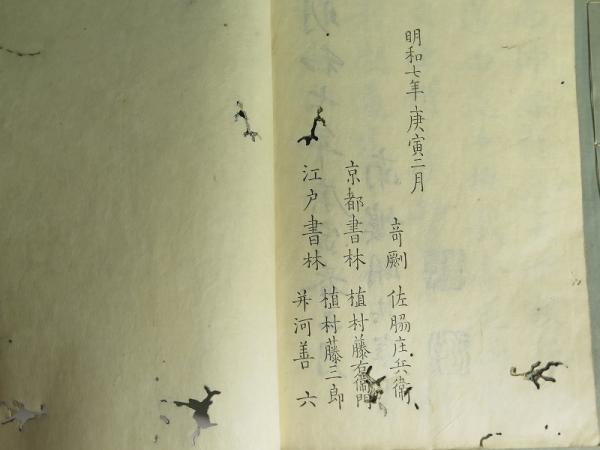 明和七年庚寅二月
竒劂 佐脇庄兵衛
京都書林 植村藤右衛門
植村藤三郎
江戸書林 井河善六